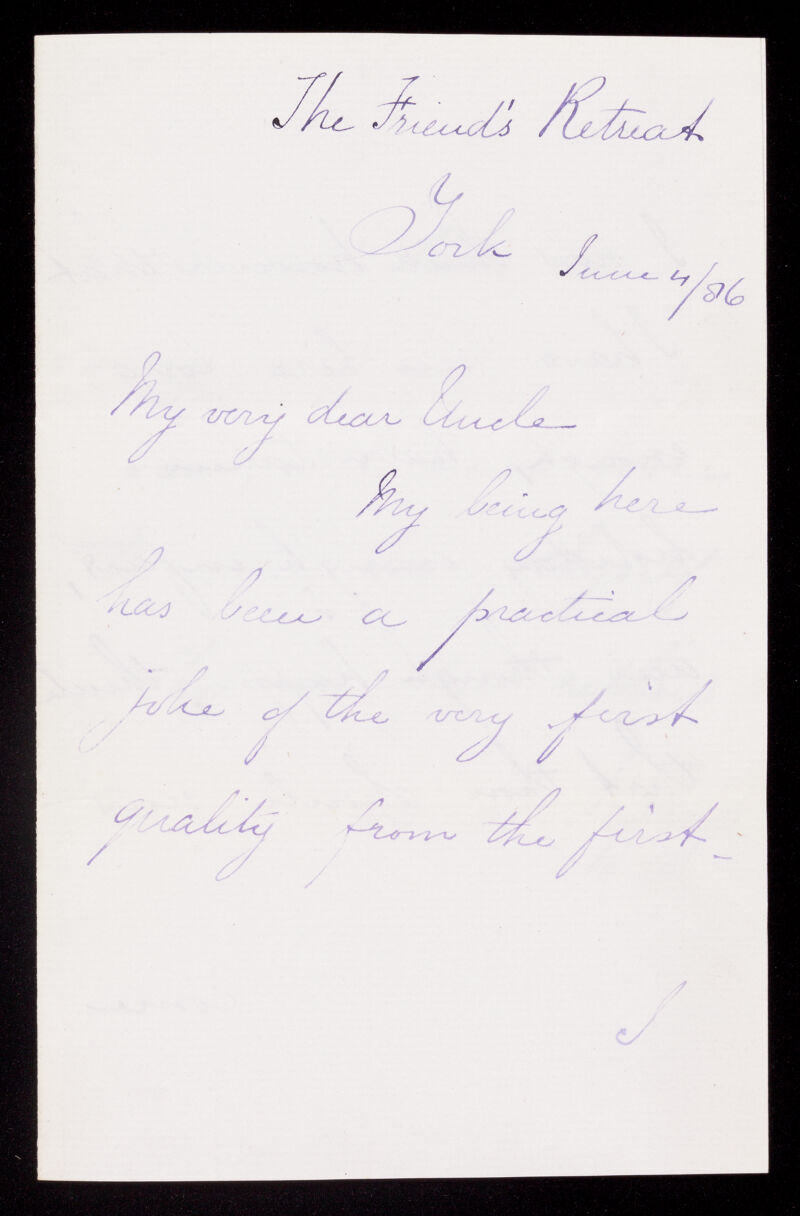 The Friend's Retreat
York June 4/86
My very dear Uncle
My being here
has been a practical
joke of the very first
quality from the first_
I